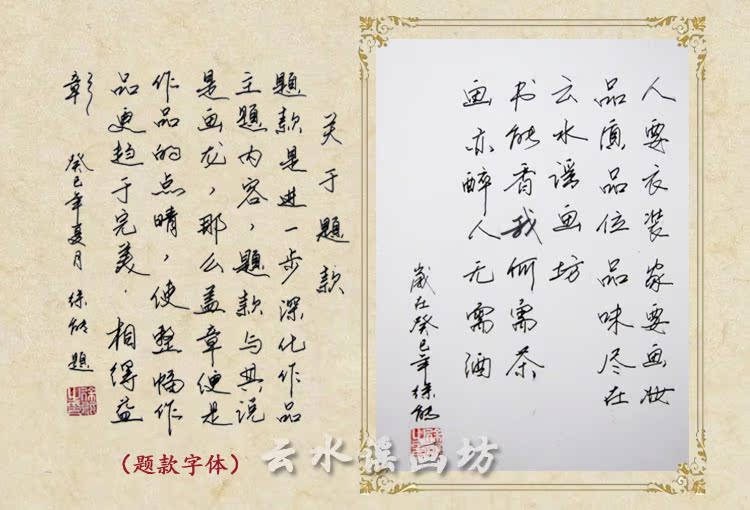 人要衣装家要画妆
品质品位品味尽在
云水谣画坊
书能香我何需茶
画亦醉人无需酒
歲在癸巳年徐能
关于题款
题款是进一步深化作品
主题内容，题款与其说
是画龙，那么盖章便是
作品的点睛，使整幅作
品更趋于完美．相得益
彰
癸巳年夏月 徐能题
（题款字体）
云水谣画坊